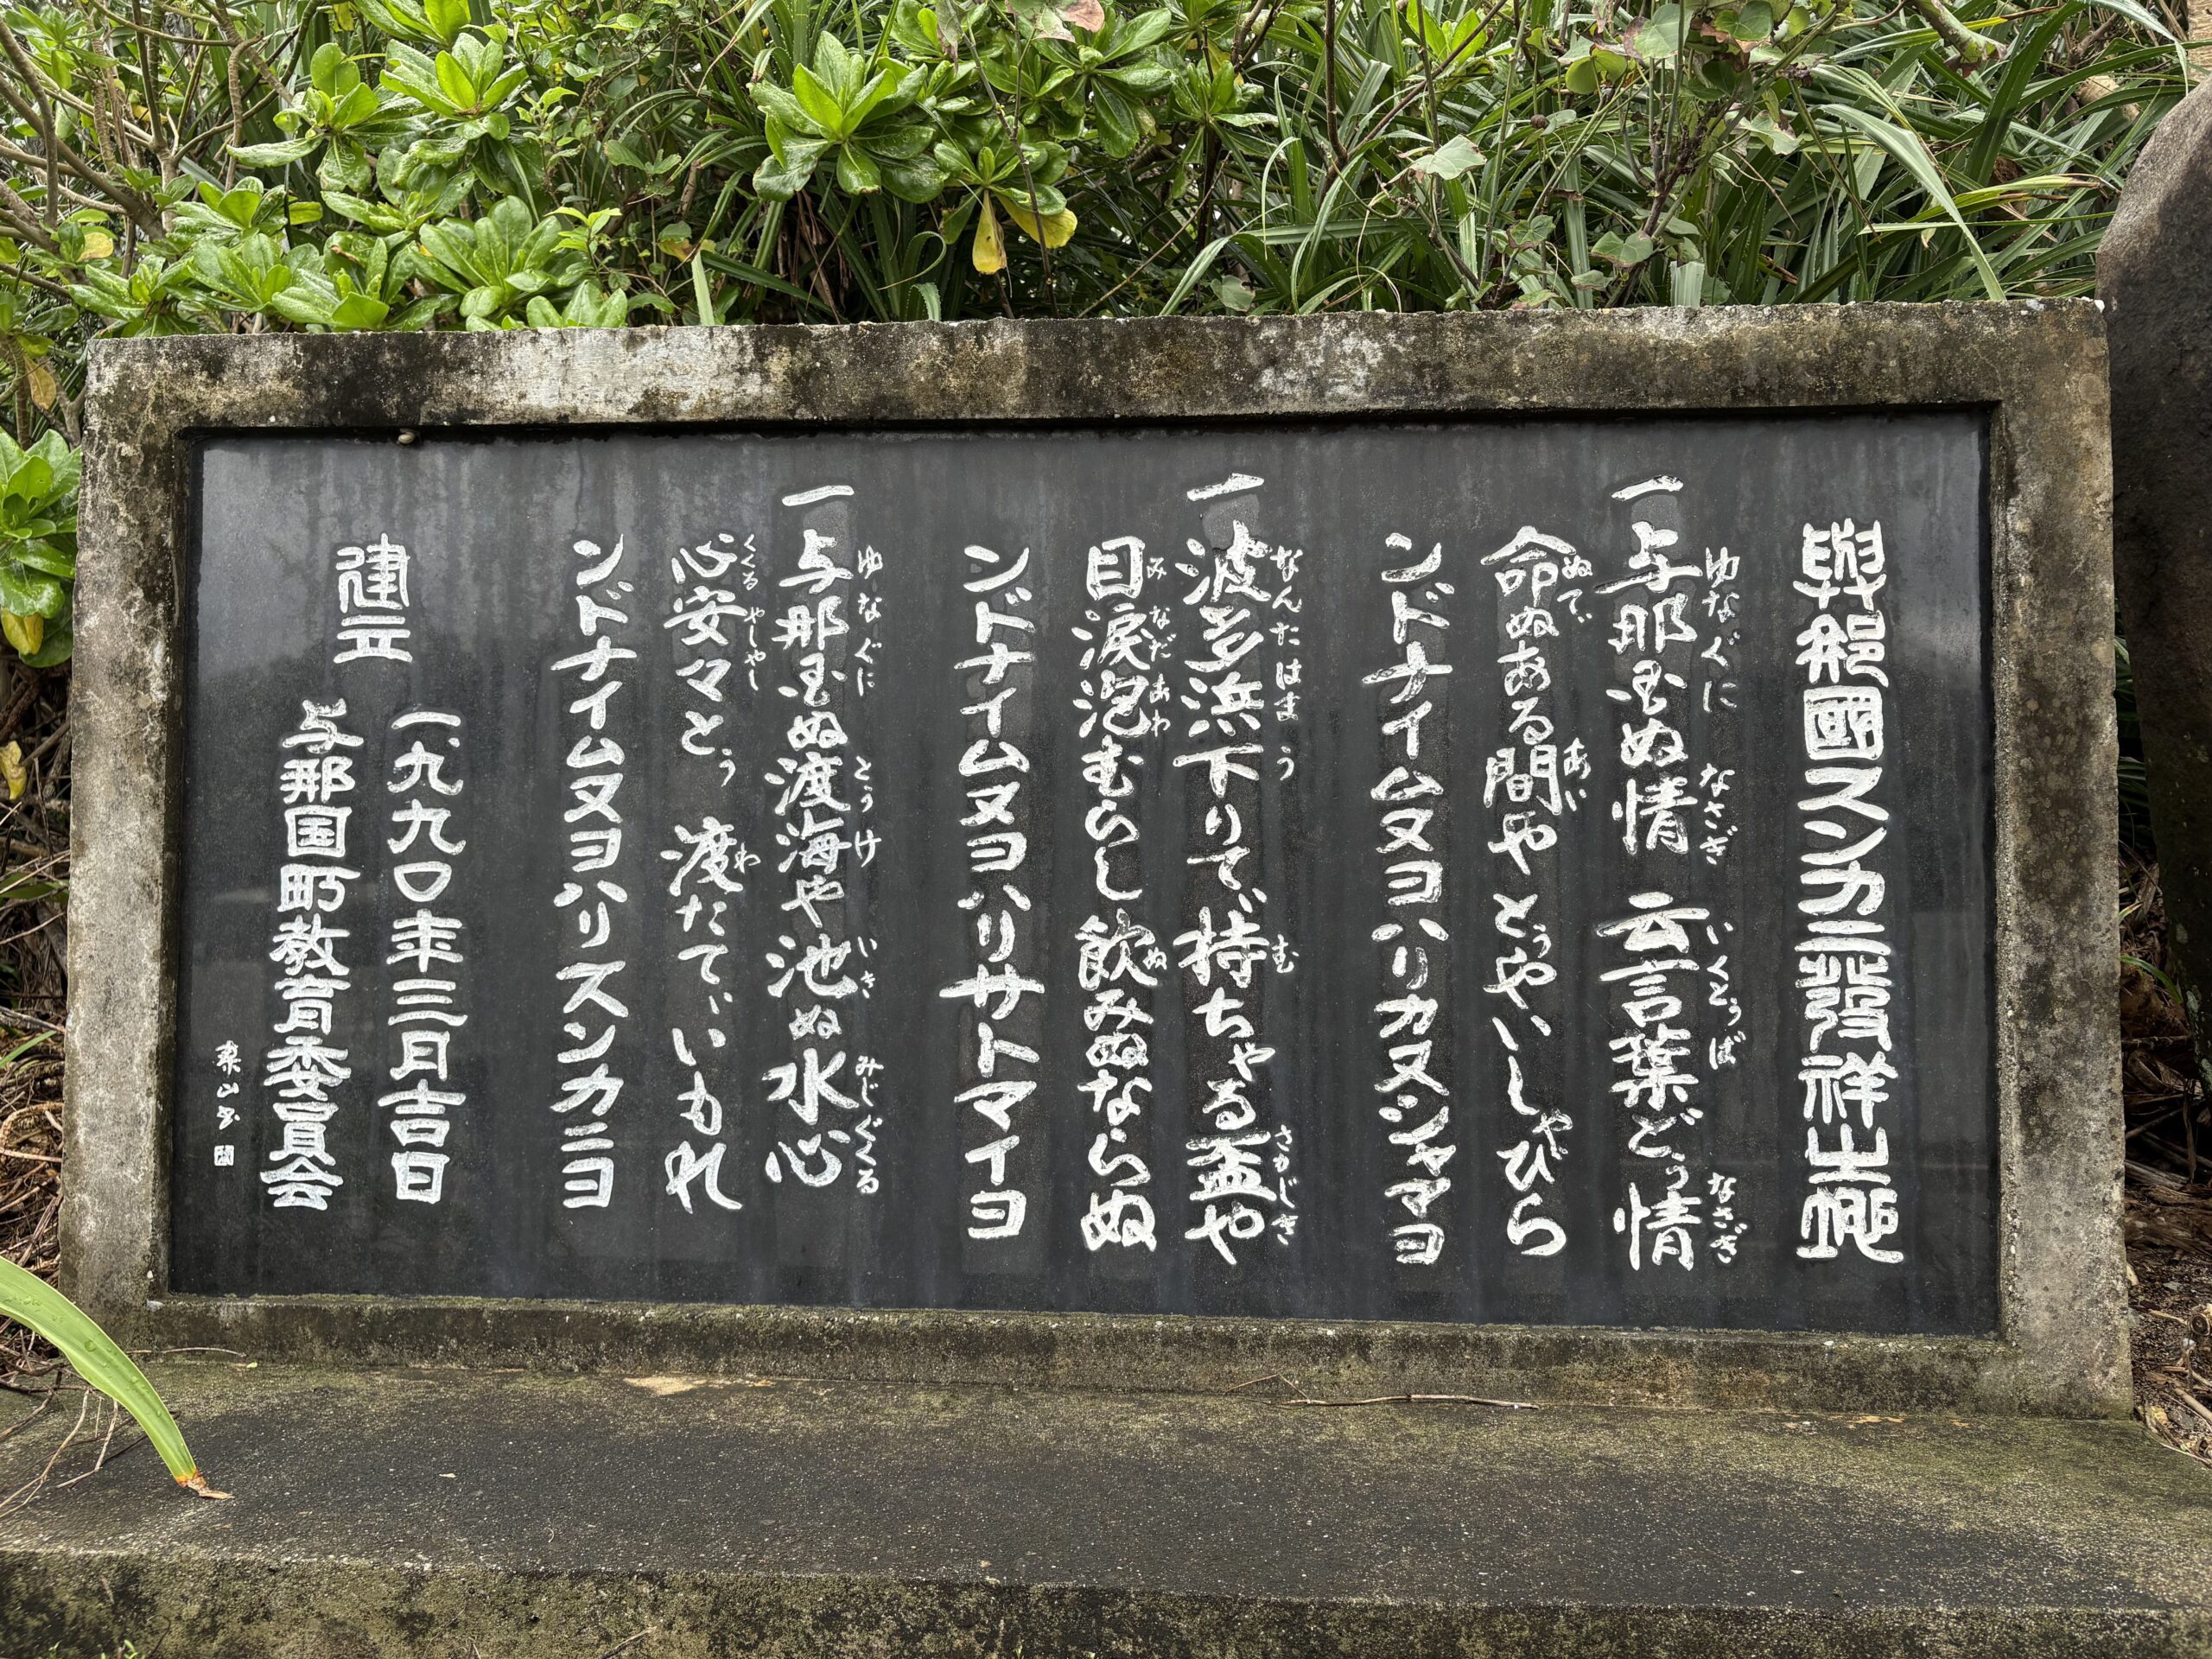 與那國スンカニ發祥之地
一与那国ぬ情 云言葉どぅ情
命ぬある間やとぅやいしゃびら
ンドナイムヌヨハリカヌシャマヨ
一波多浜下りてぃ持ちゃる盃や
目涙泡むらし飲みぬならぬ
ンドナイムヌヨハリサトマイヨ
一与那国ぬ渡海や池ぬ水心
心安々とぅ 渡たてぃいもれ
ンドナイムヌヨハリスンカニヨ
建立
一九九〇年三月吉日
与那国町教育委員会